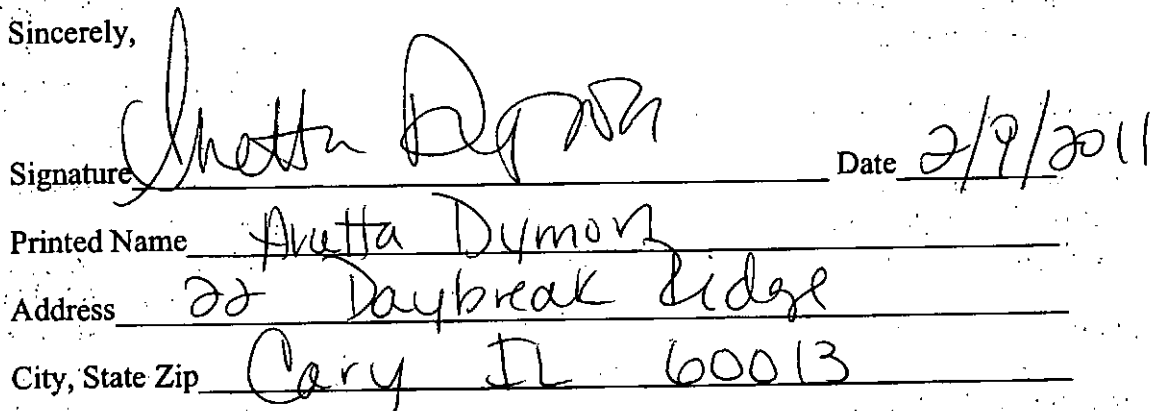 Sincerely,
Signature Date 2/9/2011
Printed Name Dymon
Address 22 Daybreak Ridge
City, State Zip Cary IL 60013